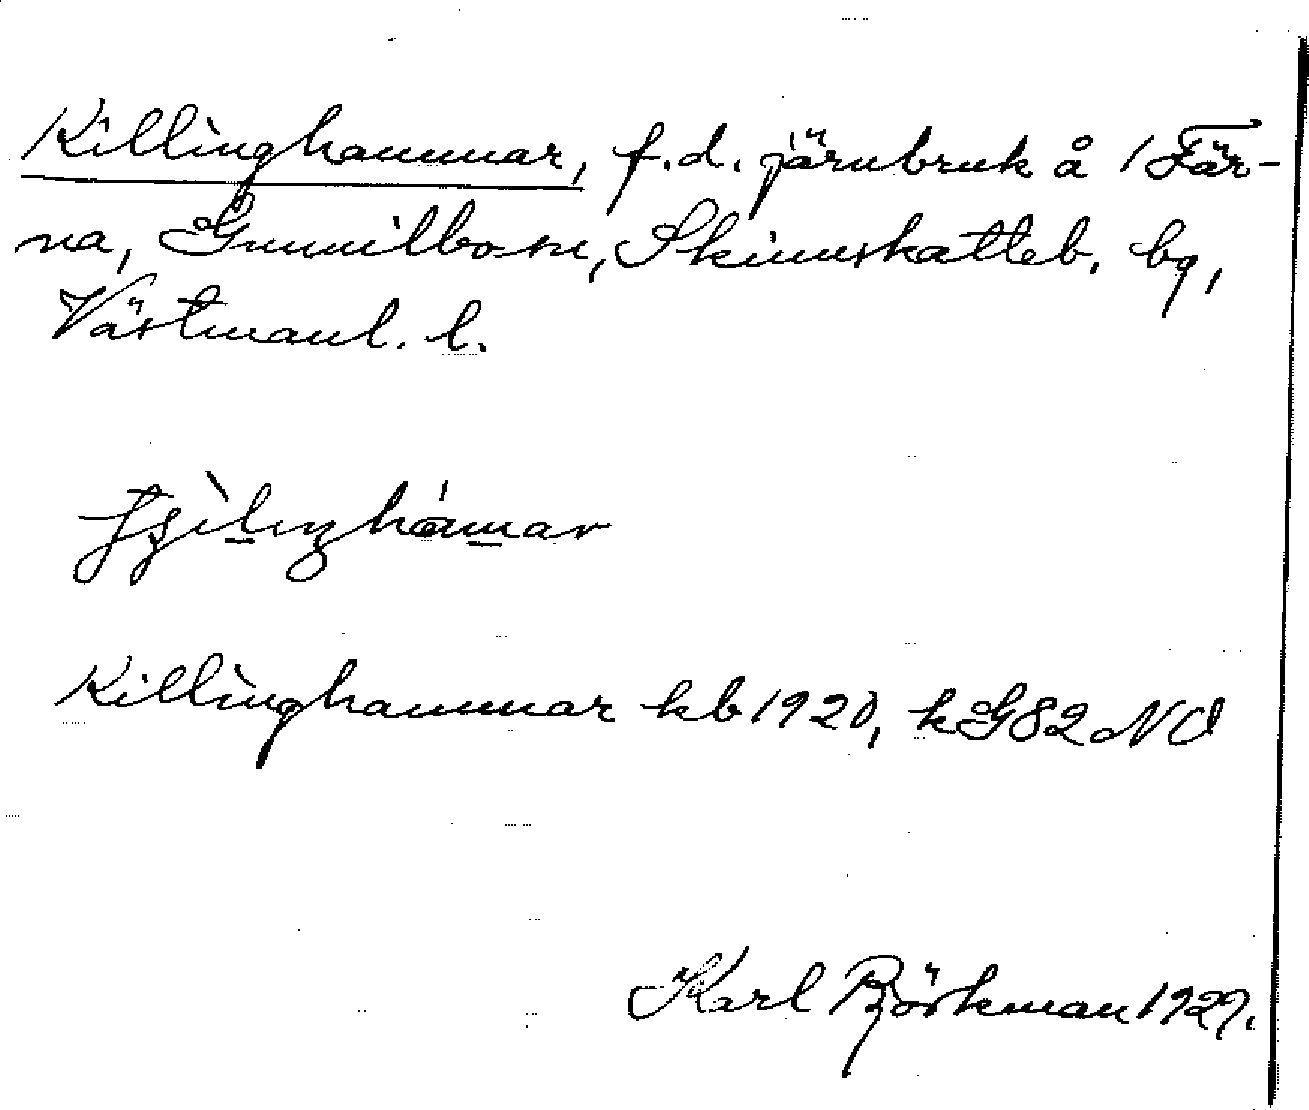 Killinghammar, f.d. järnbruk å 1 Fär-
na, Gunnilbo sn, Skinnskatteb. bg,
Västmanl. l.
Killinghammar kb 1920, k G82 NO
Karl Björkman 1927.